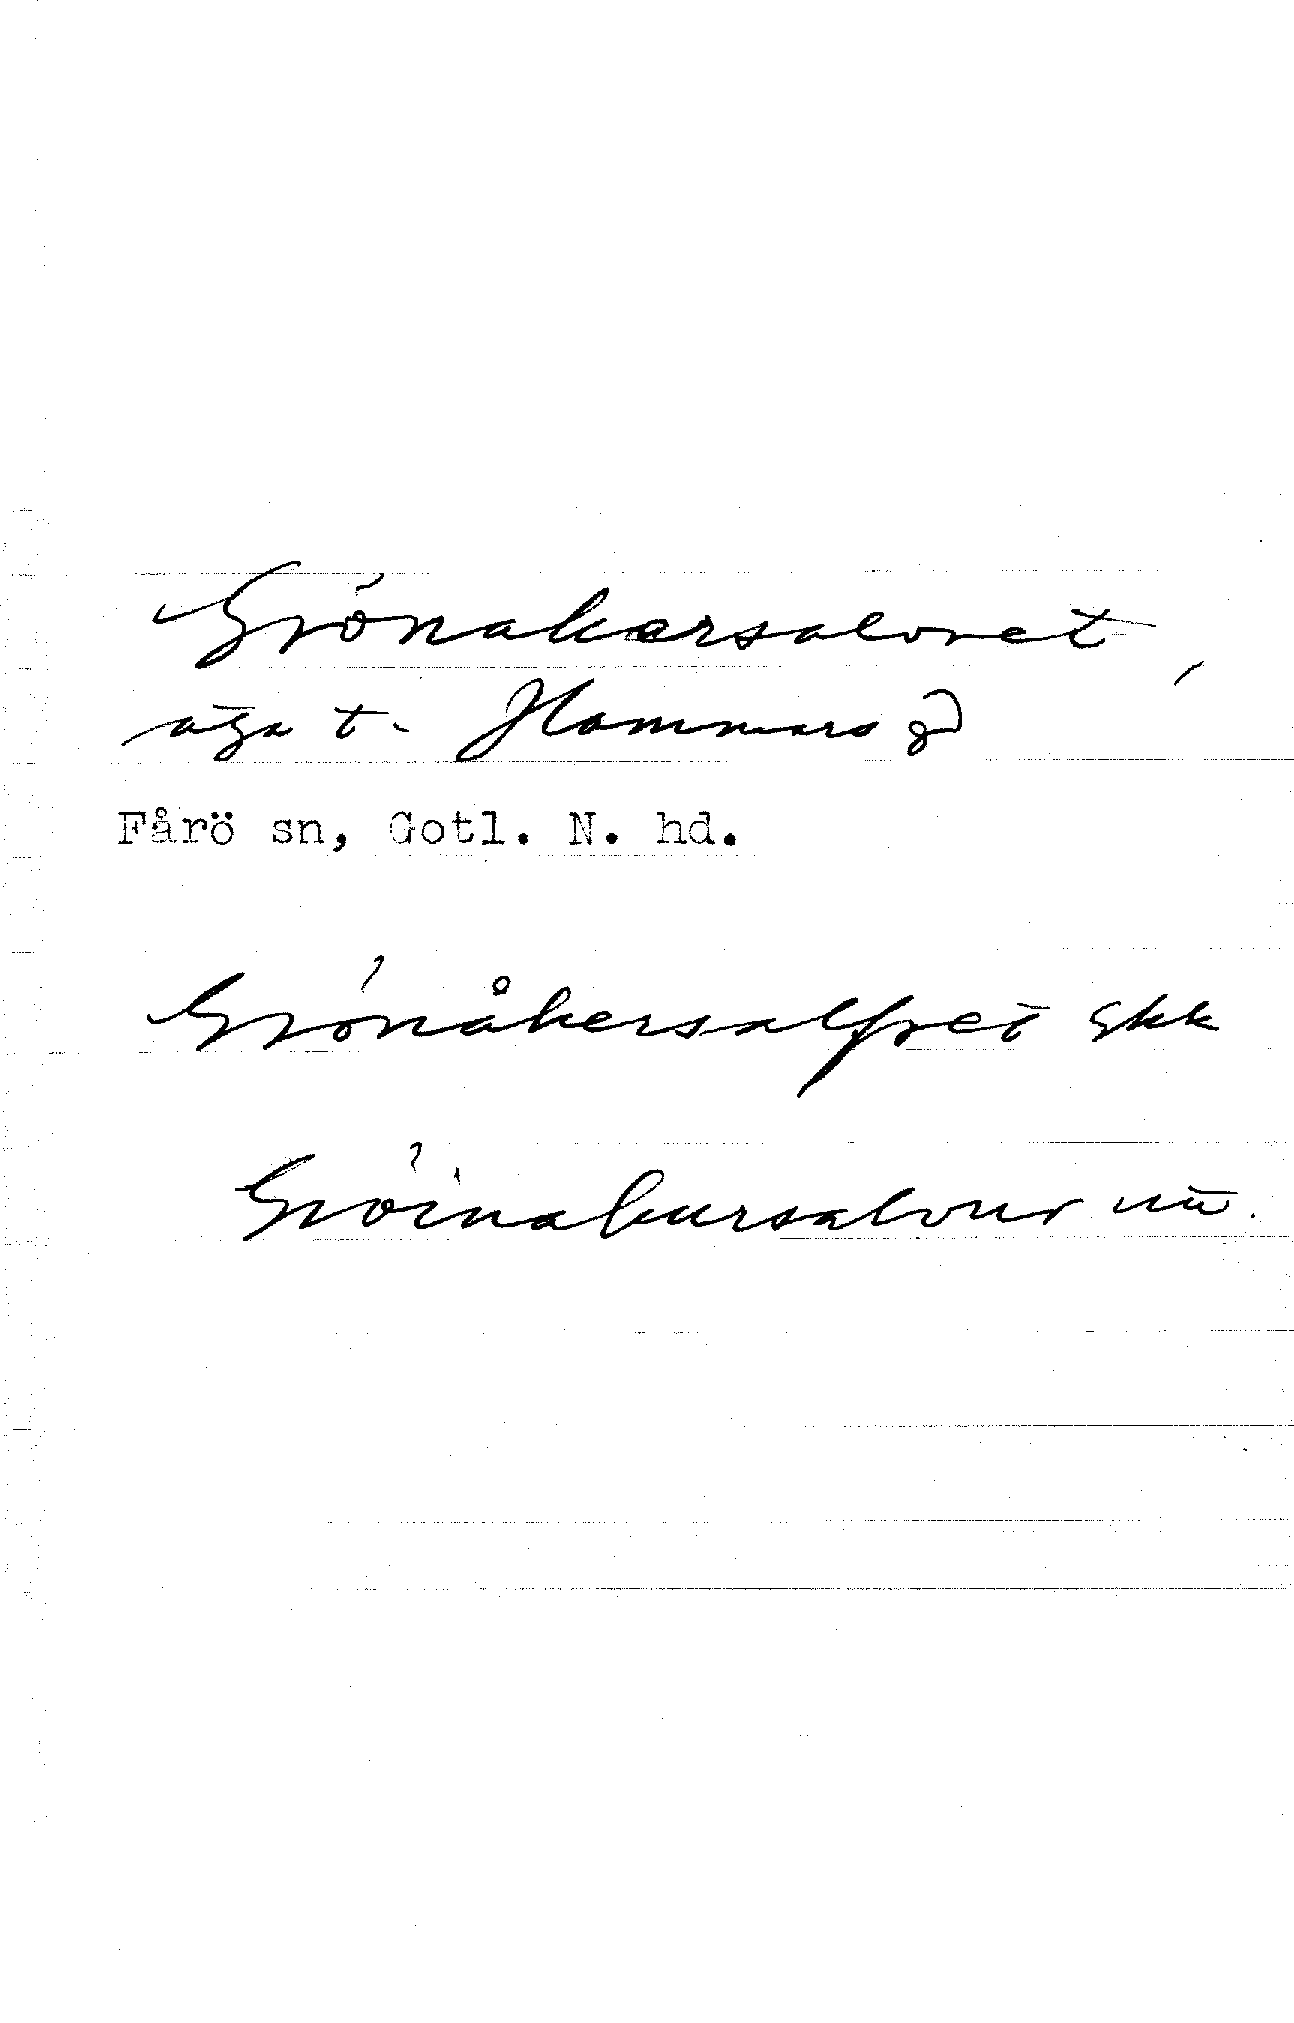 Grönakersalvret,
äga t. Hammars gd
Fårö sn, Gotl. N. hd.
Grönåkersalfret gkk
Gröinakursalvur nu.